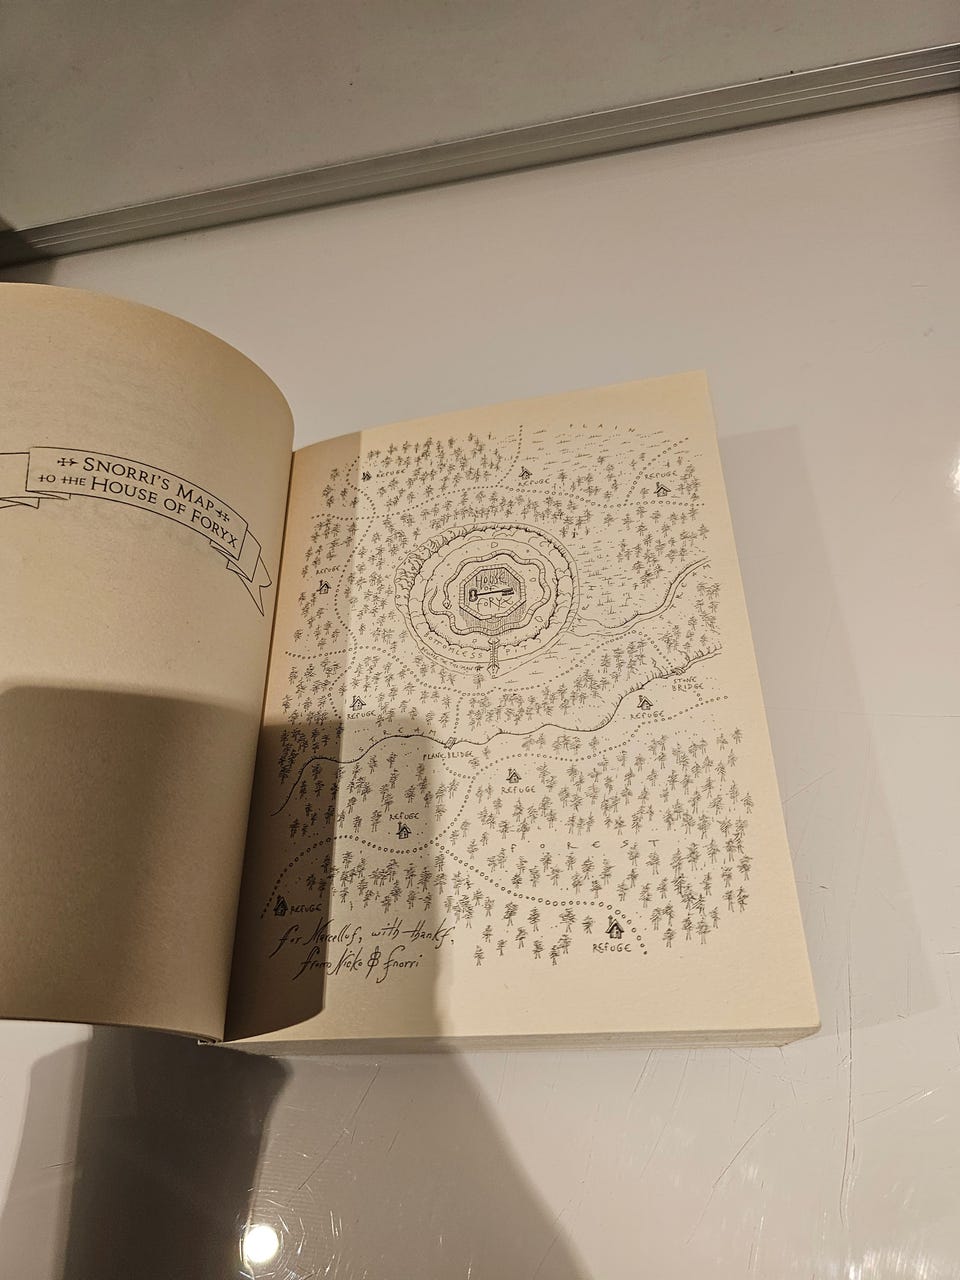 SNORRI'S MAP
TO THE HOUSE OF FORYX
PLAIN
REFUGE
REFUGE
REFUGE
REFUGE
HOUSE
OF
FORYX
BOTTOMLESS PIT
STONE
BRIDGE
REFUGE
REFUGE
STREAM
PLANK BRIDGE
REFUGE
REFUGE
FOREST
REFUGE
REFUGE
for Marcellus, with thanks,
from Nicko & Snorri